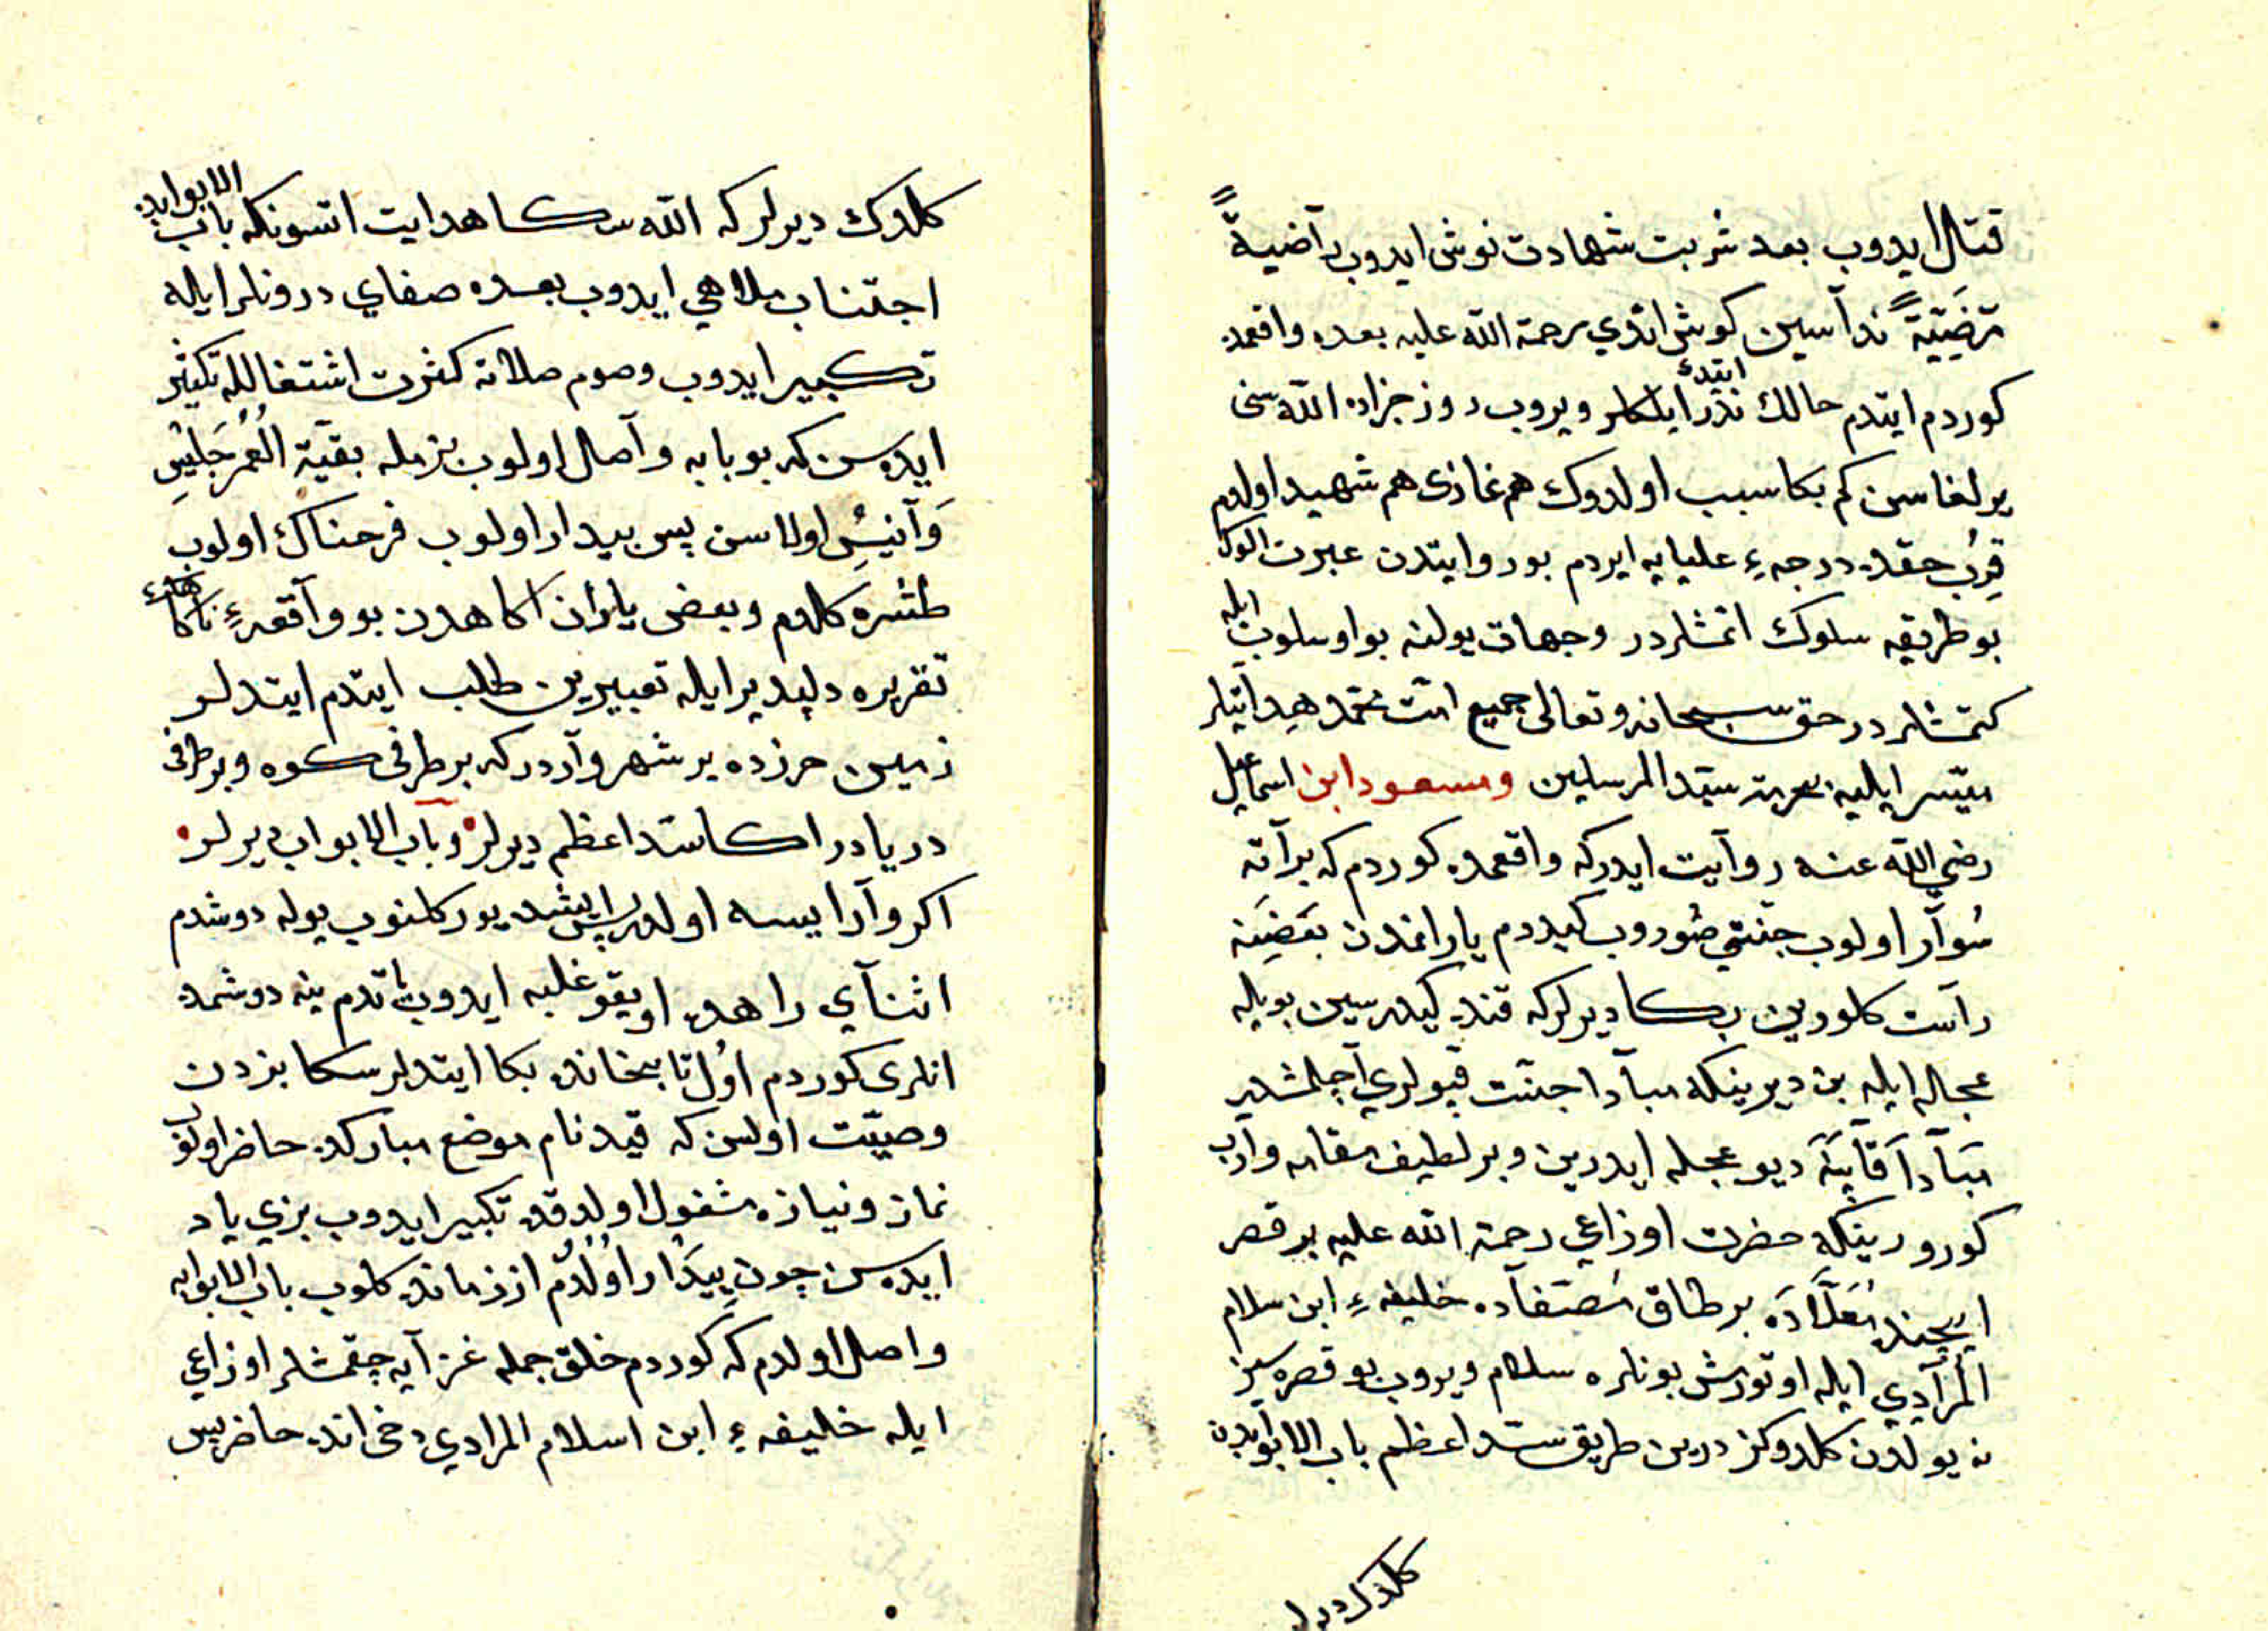 قتال ايدوب بعد شربت شهادت نوش ايدوب راضيةً
مرضيّةً نداسين كوش اتدي رحمة الله عليه بعده واقعمده
كوردم ايتدم حالك ندر ايتدى ايلكلر ويروب روز جزاده الله سنى
يرلغاسن كم بكا سبب اولدوك هم غازى هم شهيد اولدم
قرب حقده درجهء عليايه ايردم بورو ايتدن عبرت الوب
بو طريقه سلوك اتمشلردر وجهات يولنه بو اوسلوب ايله
كتمشلردر حق سبحانه وتعالى جميع امّت محمّده هدايتلر
ميسّر ايليه بحرمة سيّد المرسلين ومسعود ابن اسماعيل
رضي الله عنه روآيت ايدركه واقعمده كوردم كه بر آته
سُوآر اولوب جنّتي صُوروب كيدردم يارانمدن بَعْضِيَنه
راست كلوردين بكا ديرلركه قنده كيدرسين بويله
عجاله ايله بن ديرينكه مبآدا جنّت قپولري آچلمشدر
مَبَآدَا قَاپَنَه ديو عجله ايدرين وبر لطيف مقامه وارب
كورورينكه حضرت اوزاعي رحمة الله عليه بر قصر
ايچنده مُعَلّادَه بر طاق مُصَفّآده خليفهء ابن سلام
المُرآدِي ايله اوتورمش بونلره سلام ويروب بو قصره سز
نه يولدن كلدوكز درين طريق سدّ اعظم باب الابوابدن
كلدك ديرلر
كلدك ديرلر كه الله سكا هدايت اتسونكه باب الابوابده
اجتناب ملاهي ايدوب بعده صفاي درونلر ايله
تكبير ايدوب وصوم صلاته كثرت اشتغالله تكثير
ايدەسن كه بو بابه وآصل اولوب بزمله بقيّة العُمر جَلِيسِ
وَآنِيسِ اولاسن پس بيدار اولوب فرحناك اولوب
طشره كلدم وبعض ياران اكاهدن بو وآقعهءِ ناكاهانهء
تقريره دلپذير ايله تعبيرين طلب ايتدم ايتدلر
زمين حرزده بر شهر وآردر كه بر طرفى كوه وبر طرفى
دريادر اكا سدّ اعظم ديرلر وباب الابواب ديرلر
اكر وآر ايسه اولدر پس ايشده يورُكلنوب يوله دوشدم
اثنآي راهده اويقو غلبه ايدوب ياتدم ينه دوشمده
انلرى كوردم اوّل تابخانده بكا ايتدلر سكا بزدن
وصيّت اولسن كه قيد نام موضع مباركده حاضر اولوب
نماز ونيازه مشغول اولدقده تكبير ايدوب بزي ياد
ايدەسن چون بيدَار اوُلدُم از زمانده كلوب باب الابوابه
واصل اولدم كه كوردم خلق جمله غزآيه چقمشلر اوزاعي
ايله خليفهء ابن اسلام المرادي دخى انده حاضر پس